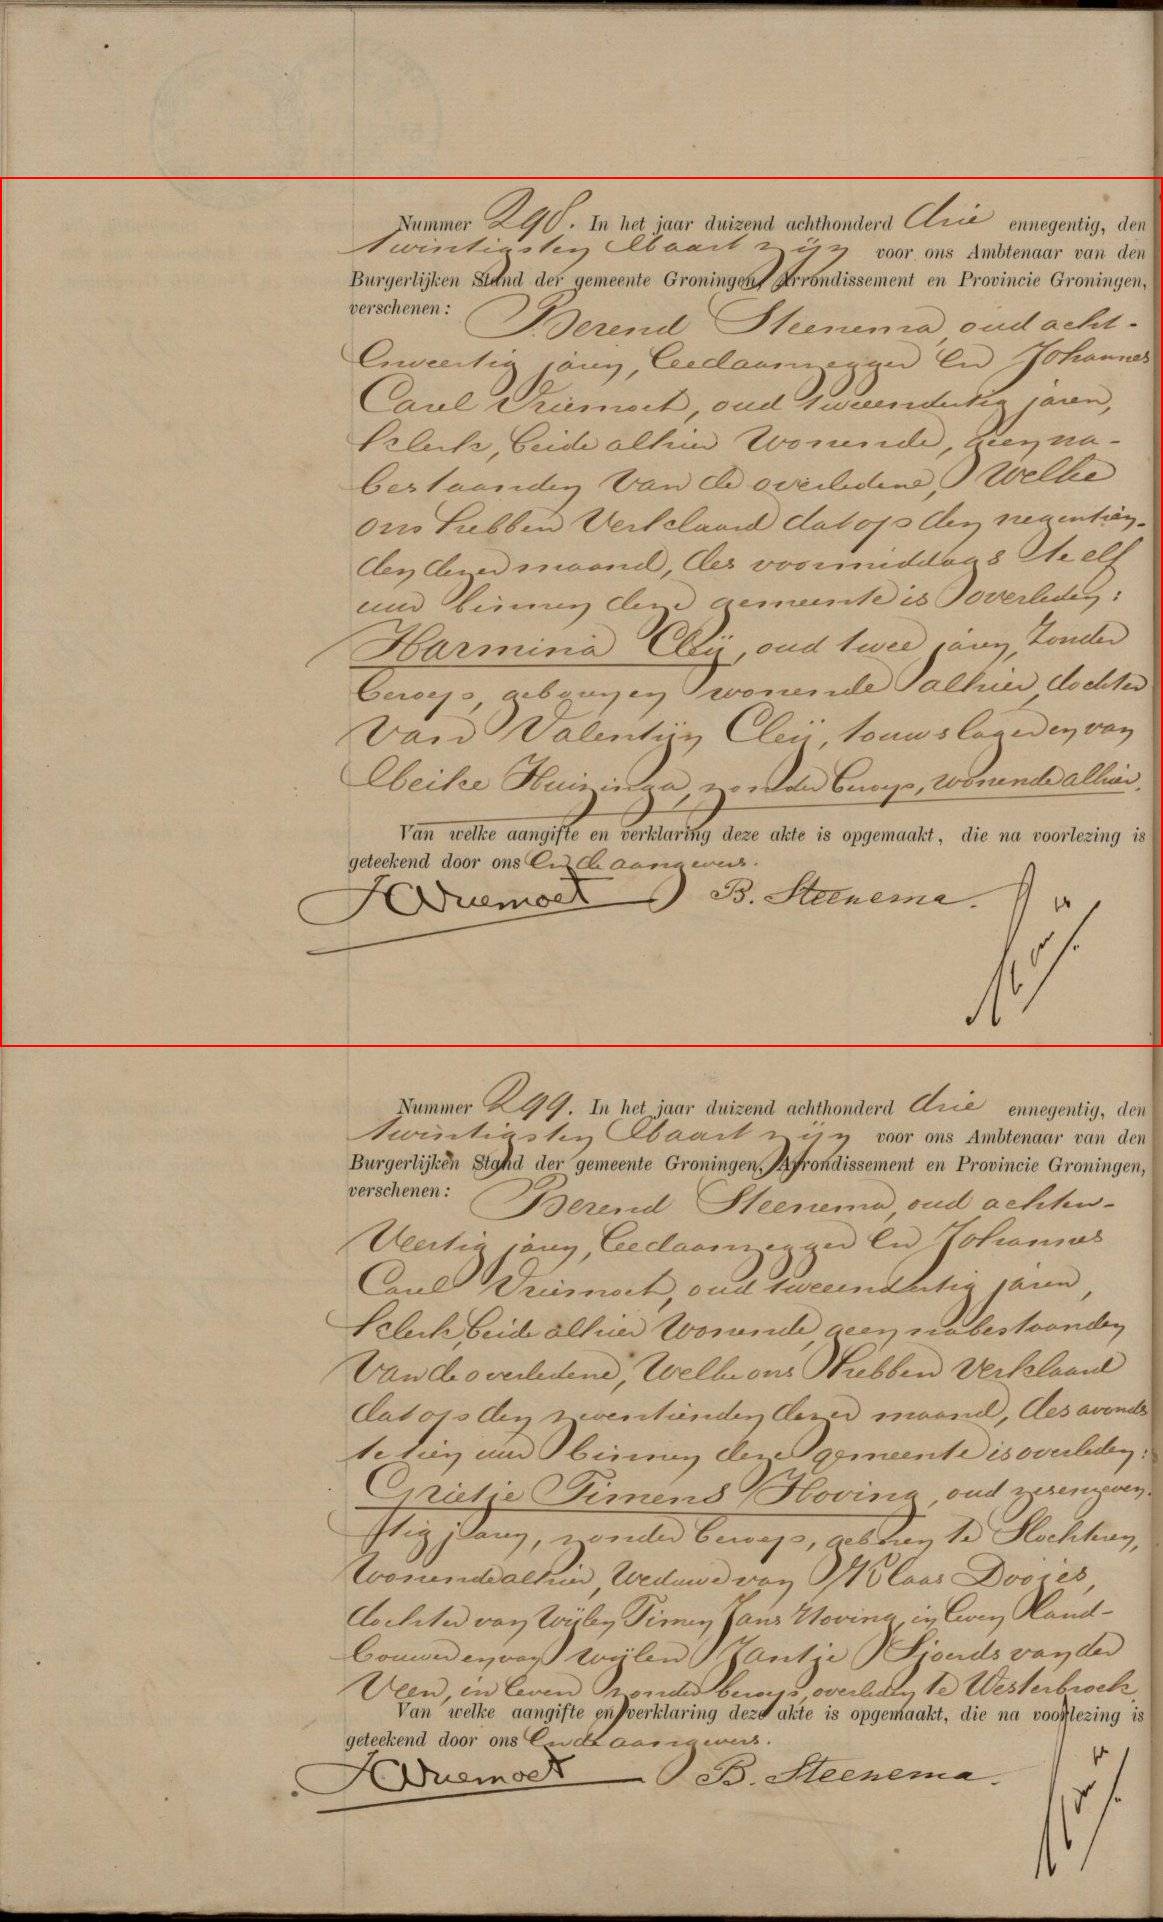 Nummer 298. In het jaar duizend achthonderd drie ennegentig, den
twintigsten Maart zijn voor ons Ambtenaar van den
Burgerlijken Stand der gemeente Groningen, Arrondissement en Provincie Groningen,
verschenen: Berend Steenema, oud acht-
enveertig jaren, leedaanzegger en Johannes
Carel Vriemoet, oud tweeendertig jaren,
klerk, beide alhier wonende, geen na-
bestaanden van de overledene, welke
ons hebben verklaard dat op den negentien-
den dezer maand, des voormiddags te elf
uur binnen deze gemeente is overleden:
Harmina Cleij, oud twee jaren, zonder
beroep, geboren en wonende alhier, dochter
van Valentijn Cleij, touwslager en van
Meike Huizinga, zonder beroep, wonende alhier.
Van welke aangifte en verklaring deze akte is opgemaakt, die na voorlezing is
geteekend door ons en de aangevers.
JCVriemoet B. Steenema.
Nummer 299. In het jaar duizend achthonderd drie ennegentig, den
twintigsten Maart zijn voor ons Ambtenaar van den
Burgerlijken Stand der gemeente Groningen, Arrondissement en Provincie Groningen,
verschenen: Berend Steenema, oud achten-
veertig jaren, leedaanzegger en Johannes
Carel Vriemoet, oud tweeendertig jaren,
klerk, beide alhier wonende, geen nabestaanden
van de overledene, welke ons hebben verklaard
dat op den zeventienden dezer maand, des avonds
te tien uur binnen deze gemeente is overleden:
Grietje Timens Hoving, oud zesenzeven-
tig jaren, zonder beroep, geboren te Slochteren,
wonende alhier, weduwe van Klaas Dooies,
dochter van wijlen Timen Jans Hoving, in leven land-
bouwer en van wijlen Jantje Sjoerds van der
Veen, in leven zonder beroep, overleden te Westerbroek.
Van welke aangifte en verklaring deze akte is opgemaakt, die na voorlezing is
geteekend door ons en de aangevers.
JCVriemoet B. Steenema.